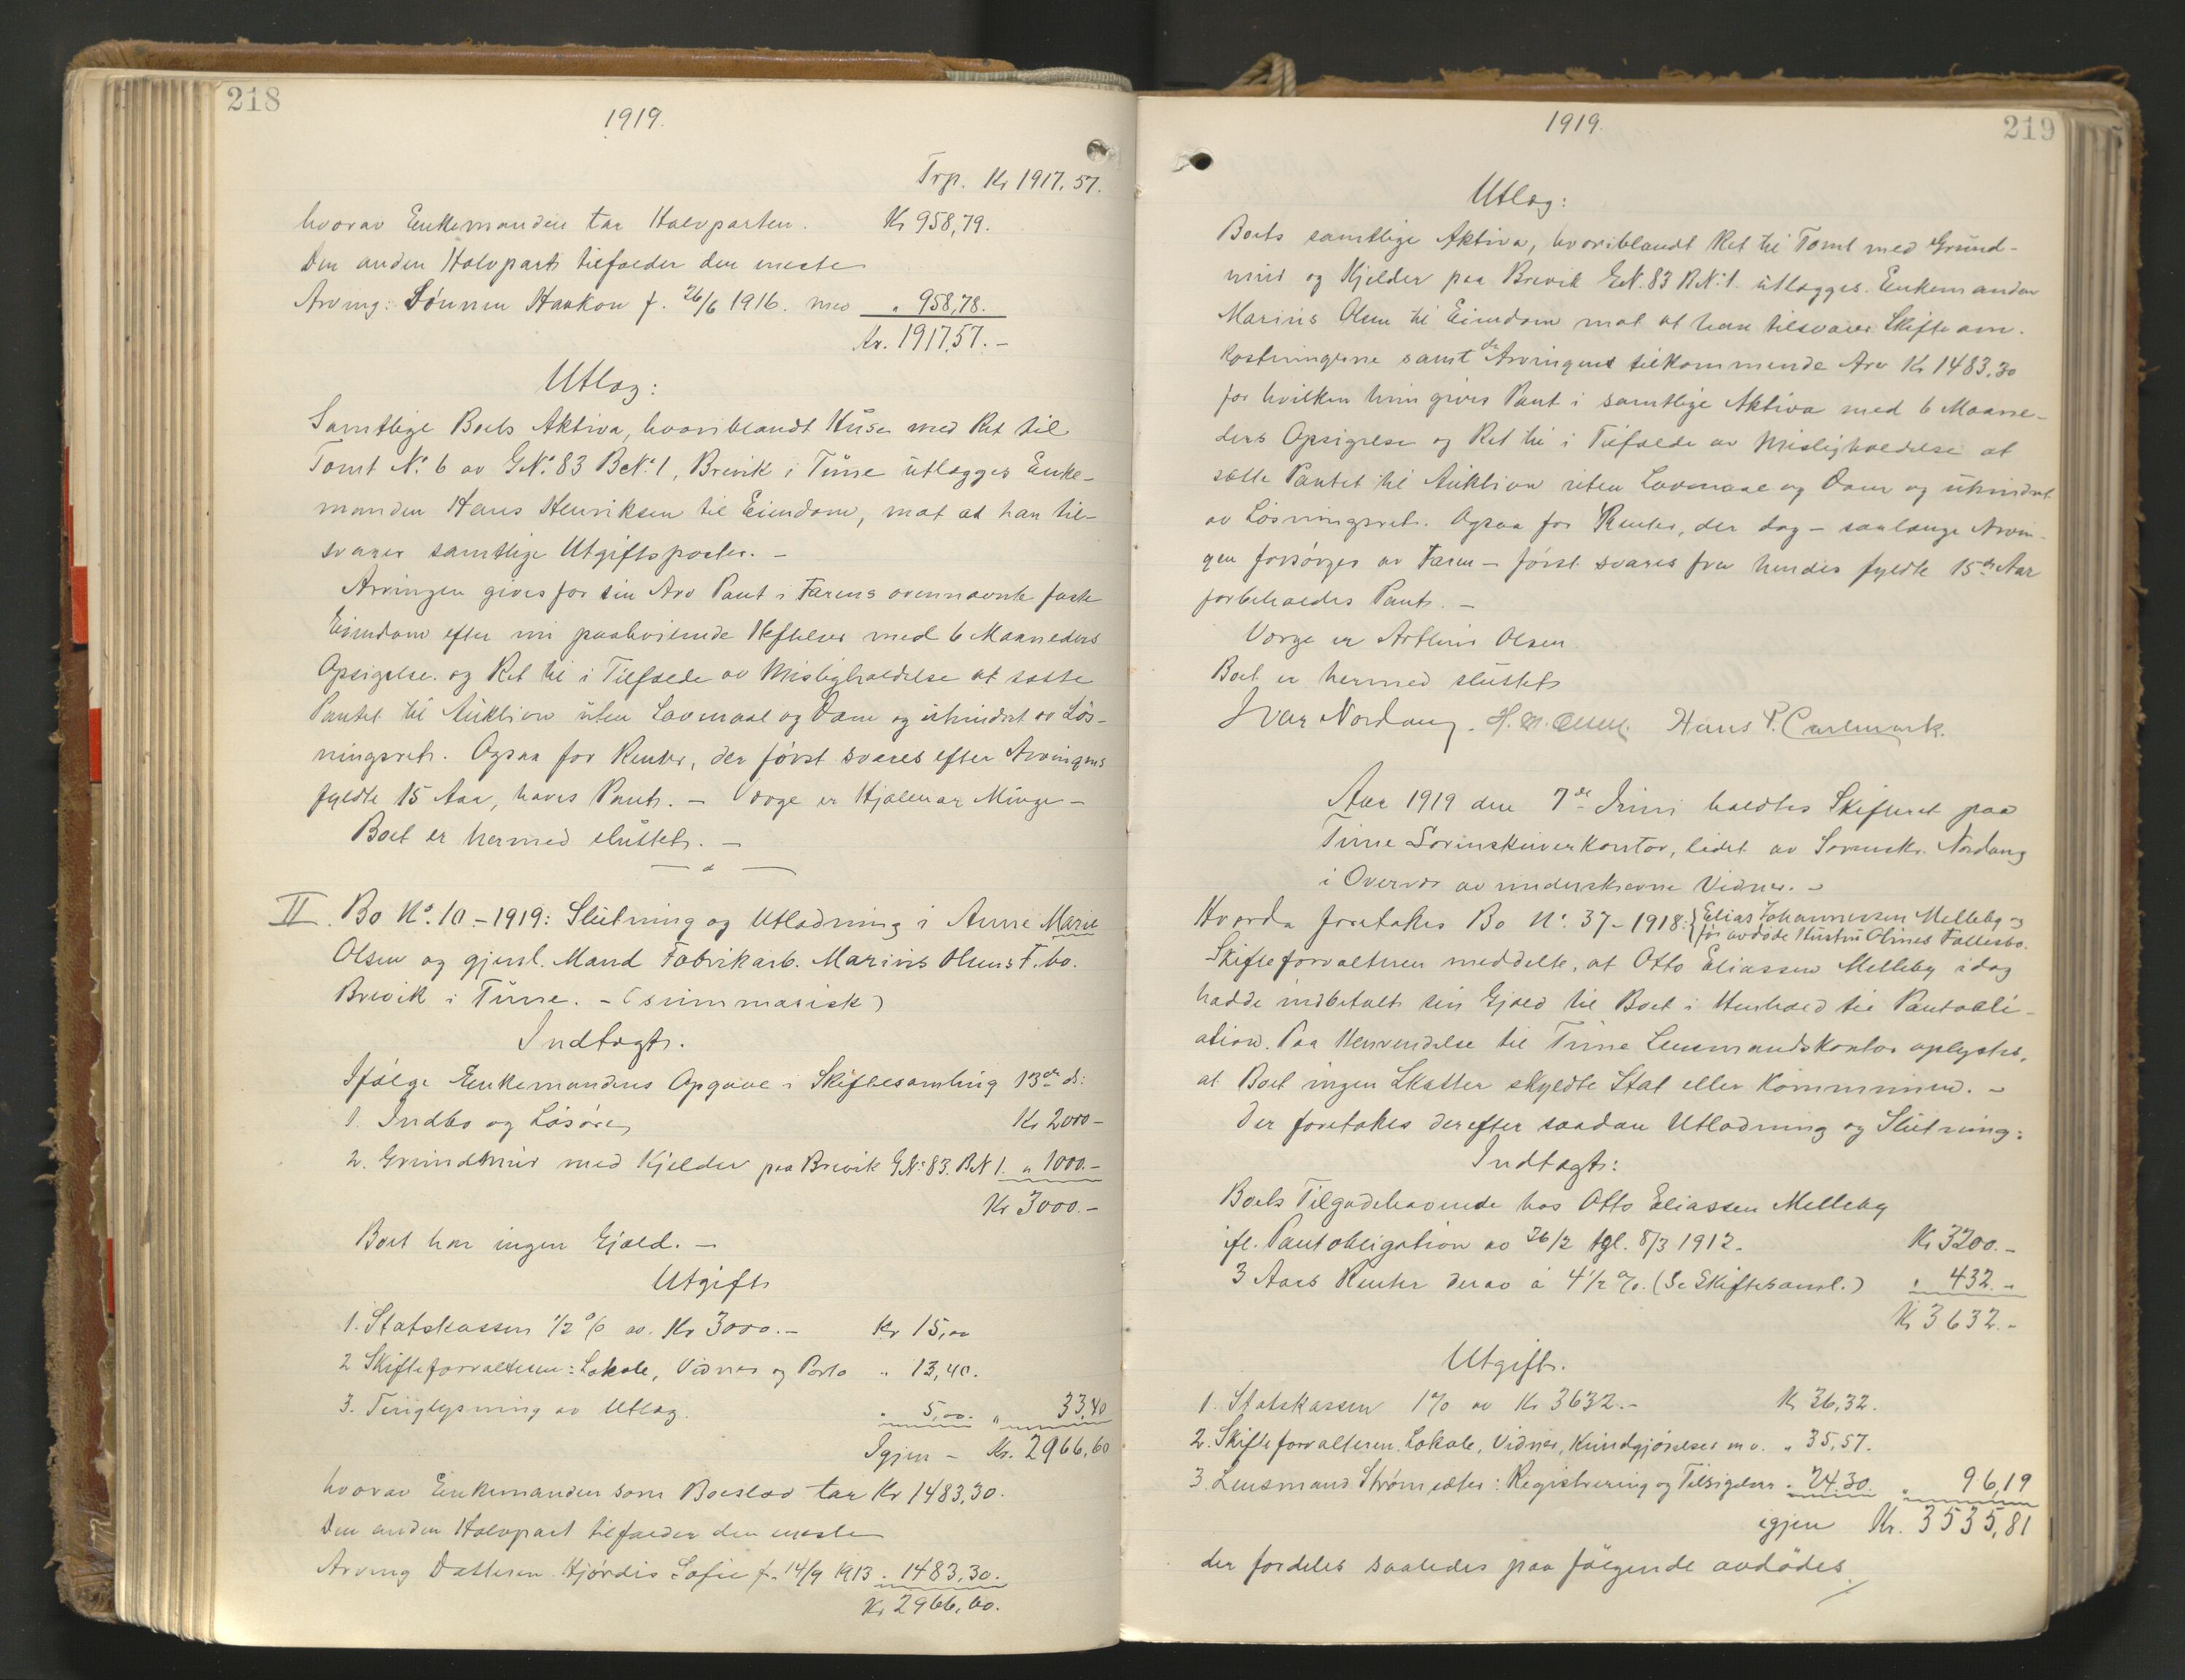 218
1919.
Trp. Kr 1917,57.
hvorav Enkemanden tar Halvparten. Kr 958,79.
Den anden Halvpart tilfalder den eneste
Arving: Sønnen Haakon f. 26/6 1916. med " 958,78.
Kr. 1917,57.-
Utlæg:
Samtlige Boets Aktiva, hvoriblandt Huse med Ret til
Tomt No. 6 av GNo. 83 BNo. 1, Brevik i Tune utlægges Enke-
manden Hans Henriksen til Eiendom, mot at han til-
svarer samtlige Utgiftsposter. -
Arvingen gives for sin Arv Pant i Farens ovennævnte faste
Eiendom efter nu paahvilende Heftelser med 6 Maaneders
Opsigelse og Ret til i Tilfælde av Misligholdelse at sætte
Pantet til Auktion uten Lovmaal og Dom og uhindret av Løs-
ningsret. Ogsaa for Renter, der først svares efter Arvingens
fyldte 15 Aar, haves Pant. - Værge er Hjalmar Minge -
Boet er hermed sluttet. -
II. Bo No. 10 - 1919: Slutning og Utlodning i Anne Marie
Olsen og gjenl. Mand Fabrikarb. Marius Olsens F. bo.
Brevik i Tune. - (summarisk)
Indtægt.
Ifølge Enkemandens Opgave i Skiftesamling 13de ds:
1. Indbo og Løsøre, Kr 2000-
2. Grundmur med Kjelder paa Brevik GNo. 83. BN 1. " 1000.-
Kr 3000.-
Boet har ingen Gjæld. -
Utgift
1. Statskassen 1/2 % av Kr 3000.- Kr 15,00
2 Skifteforvalteren: Lokale, Vidner og Porto " 13,40.
3. Tinglysning av Utlæg. " 5,00. " 33,40
Igjen - Kr. 2966,60
hvorav Enkemanden som Boeslod tar Kr 1483,30.
Den anden Halvpart tilfalder den eneste
Arving Datteren Hjørdis Sofie f. 14/9 1913 " 1483,30.
Kr 2966,60.
219
1919.
Utlæg:
Boets samtlige Aktiva, hvoriblandt Ret til Tomt med Grund-
mur og Kjelder paa Brevik GN. 83 BNo. 1. utlægges Enkemanden
Marius Olsen til Eiendom mot at han tilsvarer Skifteom-
kostningerne samt de Arvingens tilkommende Arv Kr 1483,30
for hvilken hun gives Pant i samtlige Aktiva med 6 Maane-
ders Opsigelse og Ret til i Tilfælde av Misligholdelse at
sætte Pantet til Auktion uten Lovmaal og Dom og uhindret
av Løsningsret. Ogsaa for Renter, der dog - saalænge Arvin-
gen forsørges av Faren - først svares fra hendes fyldte 15de Aar
forbeholdes Pant. -
Værge er Arthur Olsen
Boet er hermed sluttet
Ivar Nordang. H. M. Olsen. Hans P. Carlmark.
Aar 1919 den 7de Juni holdtes Skifteret paa
Tune Sorenskriverkontor, ledet av Sorenskr. Nordang
i Overvær av underskrevne Vidner. -
Hvorda foretakes Bo No. 37 - 1918: { Elias Johannessen Melleby og
før avdøde Hustru Olines Fællesbo.
Skifteforvalteren meddelte, at Otto Eliassen Melleby idag
hadde indbetalt sin Gjæld til Boet i Henhold til Pantobli-
ation. Paa Henvendelse til Tune Lensmandskontor oplystes,
at Boet ingen Skatter skyldte Stat eller Kommunen. -
Der foretakes derefter saadan Utlodning og Slutning:
Indtægt:
Boets Tilgodehavende hos Otto Eliassen Melleby
ifl. Pantobligation av 26/2 tgl. 8/3 1912. Kr 3200.-
3 Aars Renter derav à 4 1/2 %. (Se Skiftesaml.) " 432.-
Kr 3632.-
Utgift.
1. Statskassen 1% av Kr 3632.- Kr 36,32.
2. Skifteforvalteren. Lokale, Vidner, Kundgjørelser m.v. " 35,57.
3. Lensmand Strømsæther: Registrering og Tilsigelser " 24,30. " 96,19
igjen Kr. 3535,81
der fordeles saaledes paa følgende avdødes